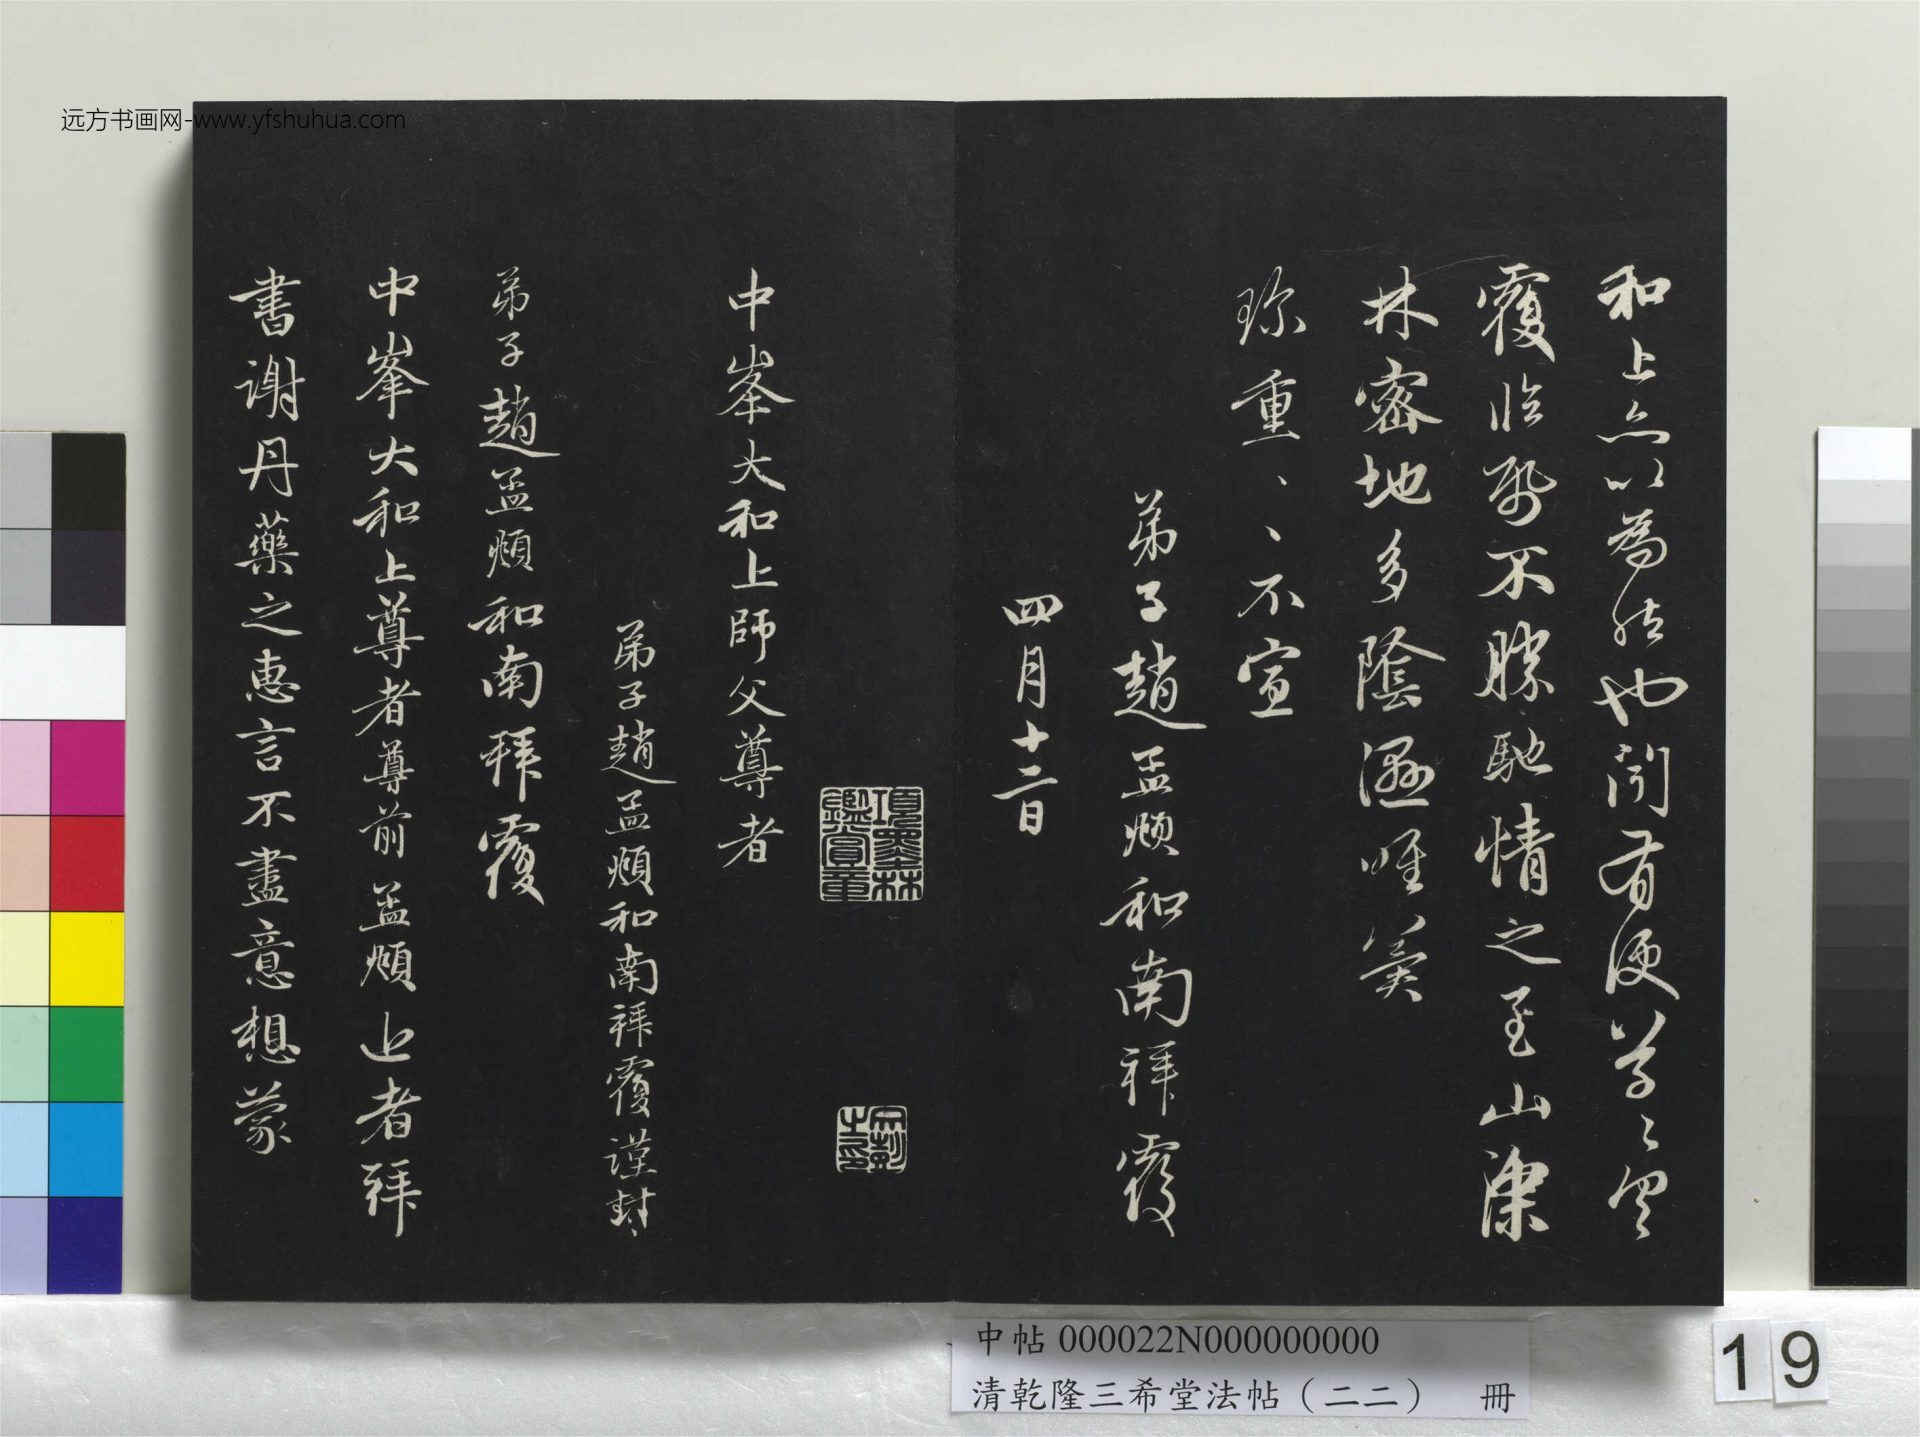 远方书画网-www.yfshuhua.com
和上亦以為然也聞有便草〻具
覆臨帋不勝馳情之至山深
林密地多陰濕唯冀
珎重、、不宣
弟子趙孟頫和南拜覆
四月十二日
項墨林鑑賞章
中峯大和上師父尊者
弟子趙孟頫和南拜覆謹封
弟子趙孟頫和南拜覆
中峯大和上尊者尊前孟頫上者拜
書謝丹藥之惠言不盡意想蒙
中帖 000022N000000000
清乾隆三希堂法帖（二二） 冊
19